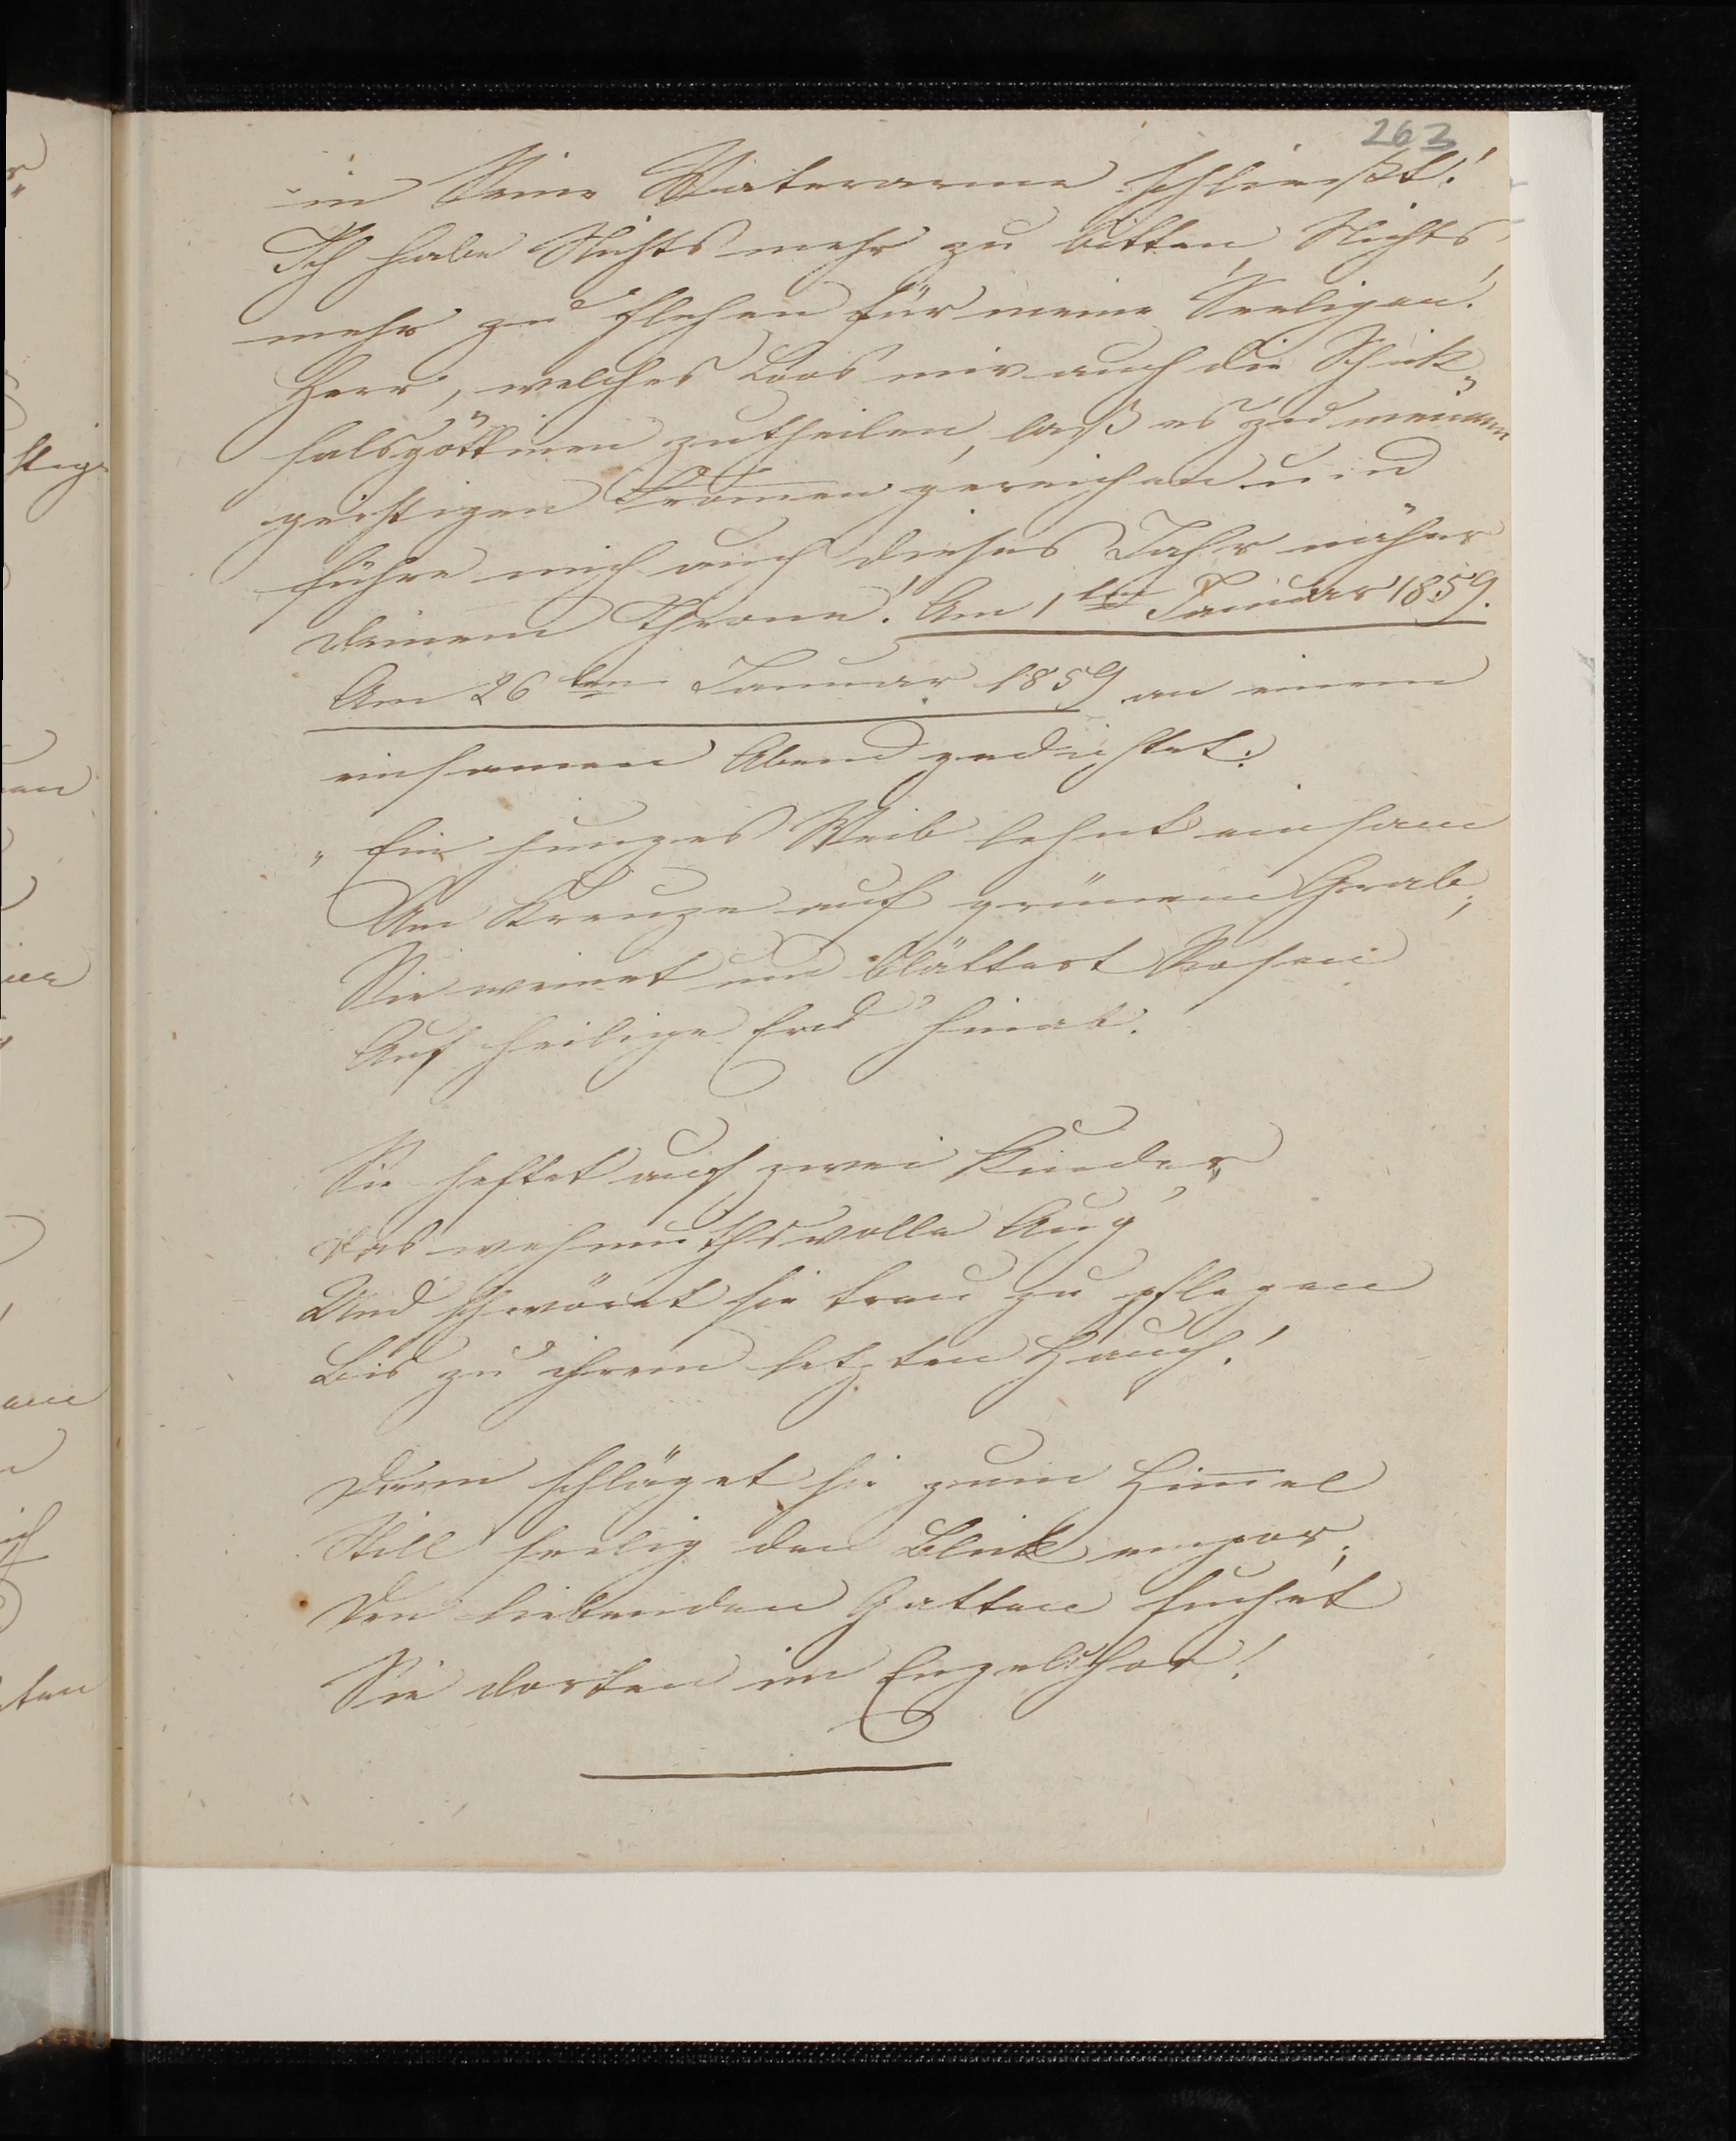 263
in Seine Vaterarme schließt!
Ich habe Nichts mehr zu bitten, Nichts
mehr zu flehen für meine Seeligen!
Herr, welches Loos mir auch die Schick„
salsgöttinen zutheilen, laß es zu meinem
geistigen Fromen gereichen und
führe mich auch dieses Jahr näher
deinem Throne! Am 1ten Januar 1859.
Am 26ten Januar 1859 an einem
einsamen Abend gedichtet:
„Ein junges Weib lehnt einsam
Am Kreuze auf grünem Grab;
Sie weinet und blättert Rosen
Auf heilige Erd' hinab.
Sie heftet auf zwei Kinder„
Das wehmuthsvolle Aug'
Und schwöret sie treu zu pflegen
Bis zu ihrem letzten Hauch!
Dann schläget sie zum Himel
Still seelig den Blick empor;
Den liebenden Gatten suchet
Sie dorten im Engelchor!